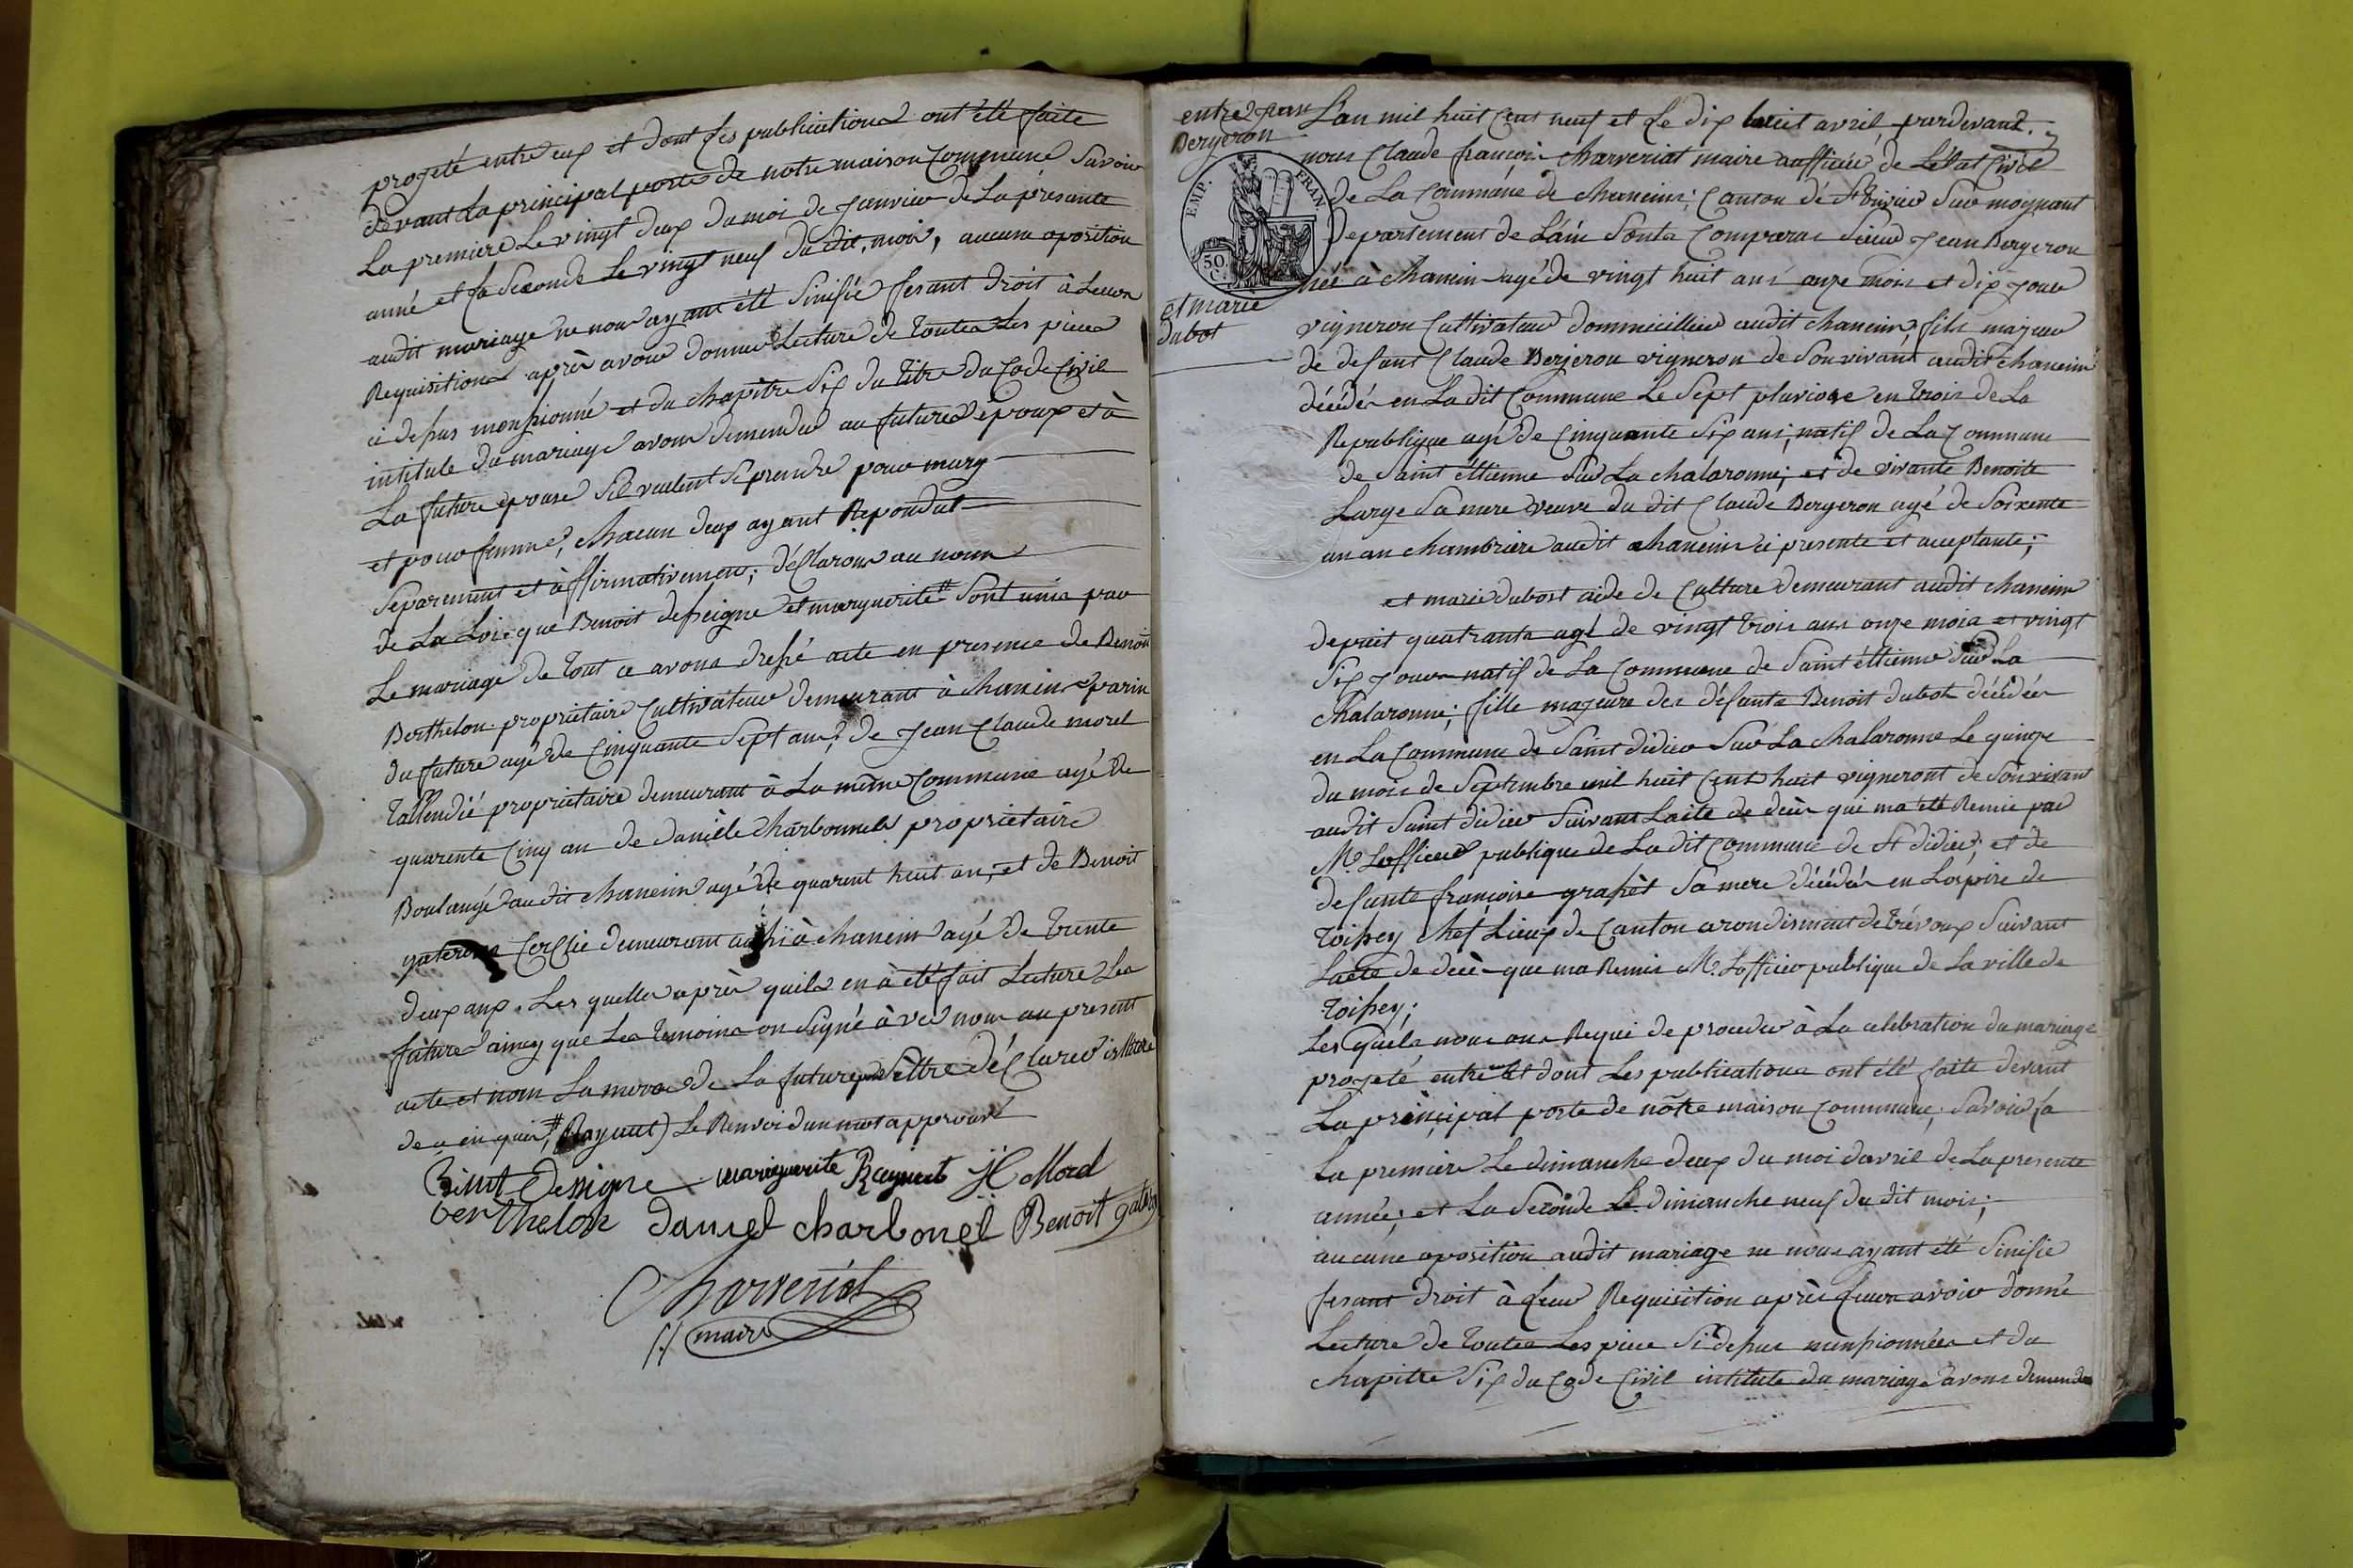 projeté entre eux et dont les publications ont été faite
devant la principal porte de notre maison Commune Savoir
La premiere Le vingt deux du moi de janvier de La présante
anné et la Seconde Le vingt neuf du dit mois, aucune oposition
audit mariage ne nous ayant été Sinifié fesant droit à Leurs
Requisitions après avoir donné Lecture de Toutes Les pieces
ci desus monsionné et du chapitre Six du Titre du Code Civil
intitulé du mariage avons demendé au future époux et à
La future épouse Sil veulent Se prendre pour mary
et pour femme, chacun deux ayant Repondut
Séparement et àffirmativement; déClarons au nom
de La Loi que Benoit desseigne et marguerite # Sont unis par
Le mariage de Tout ce avons dressé acte en presence de Benoit
Berthelon proprietaire Cultivateur demeurant à chanein parin
du future agé de Cinquante Sept ans, de Jean Claude morel
proprietaire demeurant à La même Commune agé de
quarente Cinq an de danièle charbonnel proprietaire
Boulangé au dit chanein agé de quarent huit an, et de Benoit
demeurant aussi à chanein agé de Trente
deux ans. Les quelles après quils en à été fait Lecture Les
future ainsy que Les Temoins on Signé àvec nous au present
acte et nom La mere de La future déClarer
de ce enquis, # Raynaut) Le Renvoi dun mot approuvé
Designe marguerite Raynaut JC Morel
berthelon daniel charbonel Benoit
Charveriat
maire
entre Jean
Bergeron
et marie
dubot
EMP. FRAN.
50 C.
L'an mil huit Cent neuf et Le dix huit avril pardevant
nous Claude françois charveriat maire officier de Létat Civil
de La Commune de chaneins, Canton de St Trivier Sur mognant
Departement de Láin Sont Comparus Sieur Jean Bergeron
née à chanein agé de vingt huit ans onze mois et dix jour
vigneron Cultivateur dommicillier audit chanein, fils majeur
de defunt Claude Berjeron vigneron de Son vivant audit chanein
décédé en La dit Commune Le Sept pluviose en Trois de La
Republique agé de Cinquante Six ans, natif de La Commune
de Saint éttienne Sur La chalaronne; et de vivante Benoite
Large Sa mere veuve du dit Claude Bergeron agé de Soixente
un an chambriere audit chanein ci presente et acceptante;
et marie dubost aide de Culture demeurant audit chanein
depuit quatr ants agé de vingt Trois ans onze mois et vingt
Six jours natif de La Commune de Saint éttienne Sur La
Chalaronne; fille majeure des défunts Benoit dubost décédée
en La Commune de Saint didier Sur La chalaronne Le quinze
du mois de Septembre mil huit Cent huit vigneront de Son vivant
audit Saint didier Suivant Lacte de decès qui ma été Remie par
Mr. Lofficier publique de La dit Commune de St didier, et de
defunte françoise Sa mere décédée en Lospire de
Toissey chef Lieux de Canton arondisment de Trévoux Suivant
Lacte de decè que ma Remis Mr. Lofficier publique de La ville de
Toissey;
Les quels nous ons Requi de proceder à La celebration du mariage
projeté entre eux et dont Les publications ont été faite devant
La principal porte de notre maison Commune, Savoir La
La premiere Le dimanche deux du moi davril de La presente
année; et La Seconde Le dimanche neuf du dit mois;
aucune oposition audit mariage ne nous ayant été Sinifié
fesant droit à Leur Requisition après Leurs avoir donné
Lecture de Toutes Les piece Si desus mensionnées et du
chapitre Six du Code Civil intitulé du mariage avons demendé